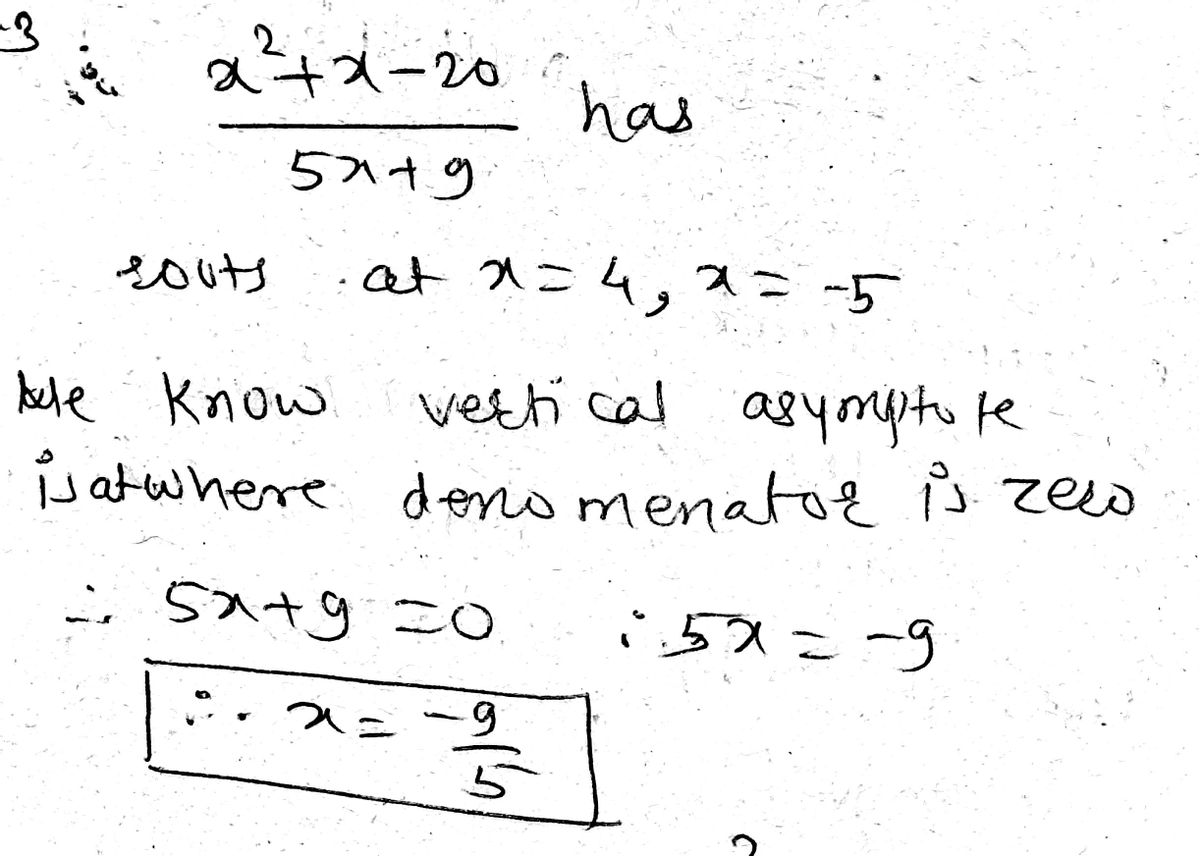 -3
∴ x²+x-20 has
5x+9
roots at x=4, x=-5
We know vertical asymptote
is at where denomenator is zero
∴ 5x+9=0 ∴ 5x=-9
∴ x=-9
5